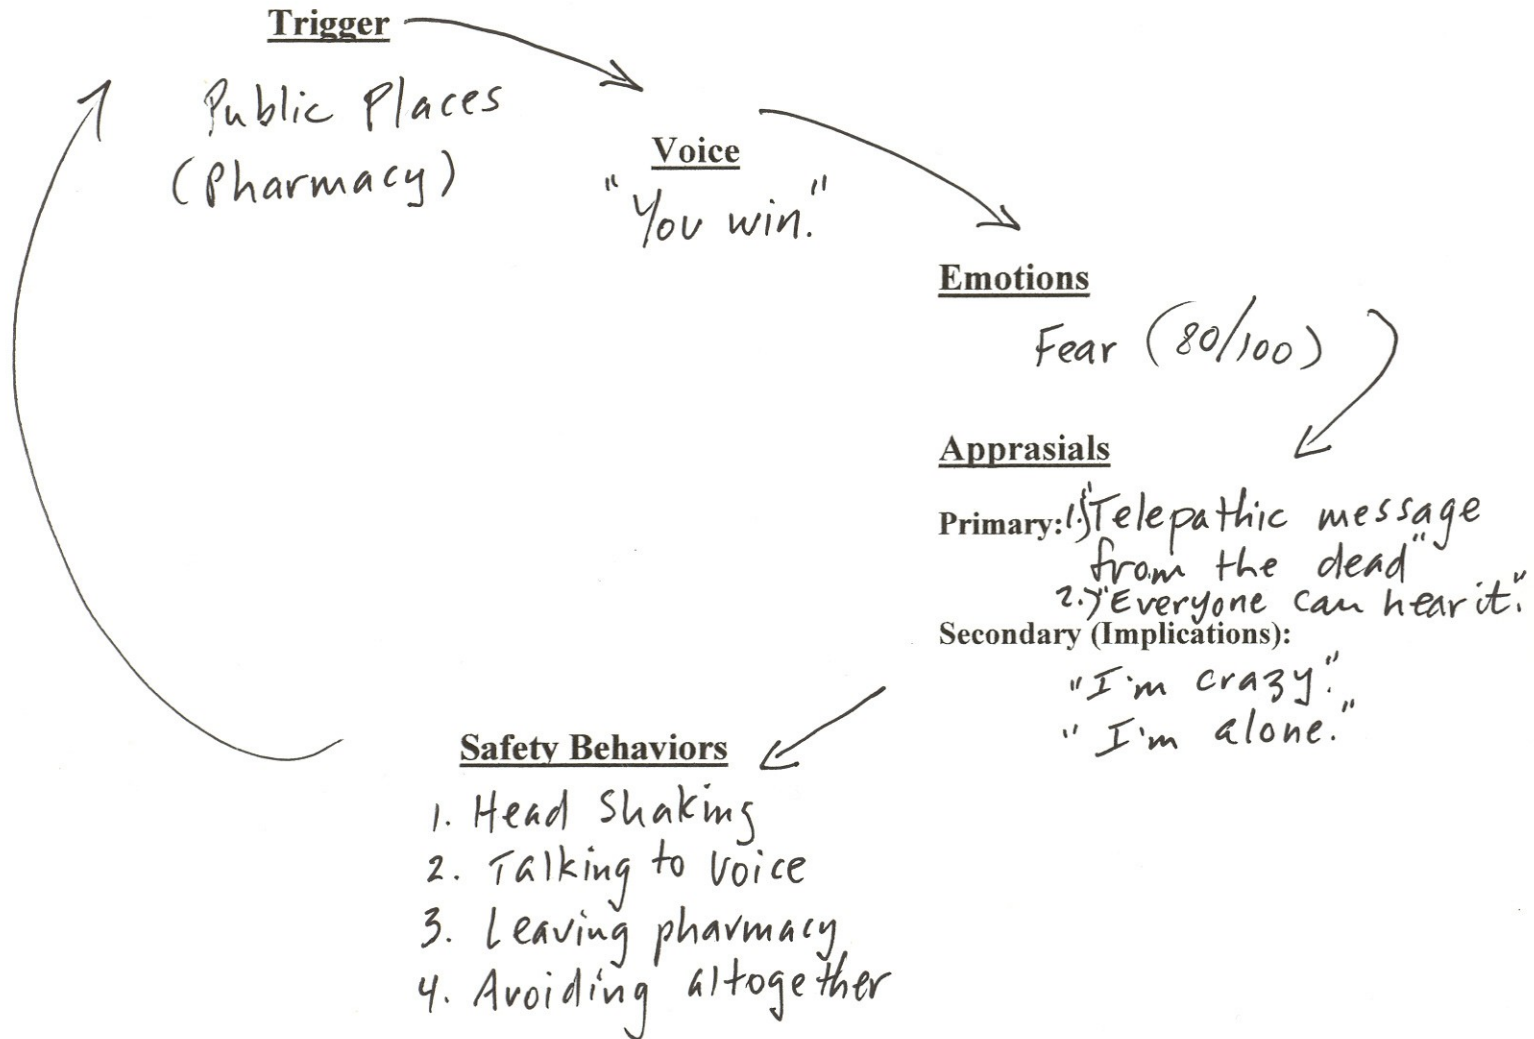 Trigger
Public Places
(Pharmacy)
Voice
"You win."
Emotions
Fear (80/100)
Apprasials
Primary: 1.) "Telepathic message
from the dead"
2.) "Everyone can hear it."
Secondary (Implications):
"I'm crazy."
"I'm alone."
Safety Behaviors
1. Head Shaking
2. Talking to Voice
3. Leaving pharmacy
4. Avoiding altogether